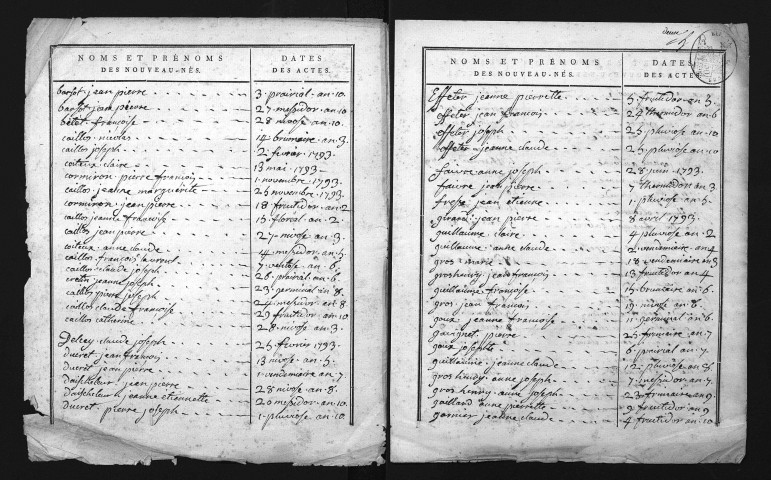 NOMS ET PRÉNOMS
DES NOUVEAU-NÉS.
DATES
DES ACTES.
barfot jean pierre 3 prairial an 10.
barfot jean pierre 27 messidor an 10
bétet françoise 28 nivose an 10.
caillos nicolas 14 brumaire an 3.
caillos joseph 2 fevrier 1793.
coiteux claire 13 mai 1793
cormiron pierre francois 1 novembre 1793.
caillos jeanne marguerite 25 novembre 1793.
cormiron jean pierre 18 fructidor an 2
caillos jeanne francoise 15 floréal an 2.
caillos jean pierre 27 nivose an 3.
coiteux anne claude 14 messidor an 5.
caillos francois 7 ventose an 6.
caillos claude joseph 26 prairial an 6.
cretin jeanne joseph 23 germinal an 8.
caillos pierre joseph 24 messidor an 8.
caillos claude francoise 29 fructidor an 10
caillos catherine 28 nivose an 3.
Delcey claude joseph 25 fevrier 1793.
ducret jean francois 13 nivose an 5.
ducret jean pierre 1 vendemiaire an 7.
jean pierre 28 nivose an 8.
jeanne etiennette 20 messidor an 10.
ducret pierre joseph 1 pluviose an 10.
NOMS ET PRÉNOMS
DES NOUVEAU-NÉS.
DATES
DES ACTES
Effeter jeanne pierrette 5 fructidor an 3.
effeter jean francois 24 thermidor an 6
effeter joseph 25 pluviose an 10
effeter jeanne claude 25 pluviose an 10.
faivre anne joseph 28 juin 1793
faivre jean pierre 7 thermidor an 3
jean etienne 1 pluviose an 5.
girard jean pierre 8 avril 1793.
guillaume claire 4 pluviose an 2.
guillaume anne claude 2 vendemiaire an 4
gros marie 18 vendemiaire an 3
groshenry jean francois 13 fructidor an 4
guillaume francoise 15 brumaire an 5.
gros jean francois 19 nivose an 6.
goux jeanne francoise 11 germinal an 6.
pierre 25 frimaire an 7
goux josephte 6 prairial an 7.
guillaume jeanne claude 12 pluviose an
groshenry anne joseph 7 messidor an 7.
groshenry anne joseph 23 frimaire an 9.
gaillard anne pierrette 9 fructidor an 9
garnier jeanne claude 4 fructidor an 10.